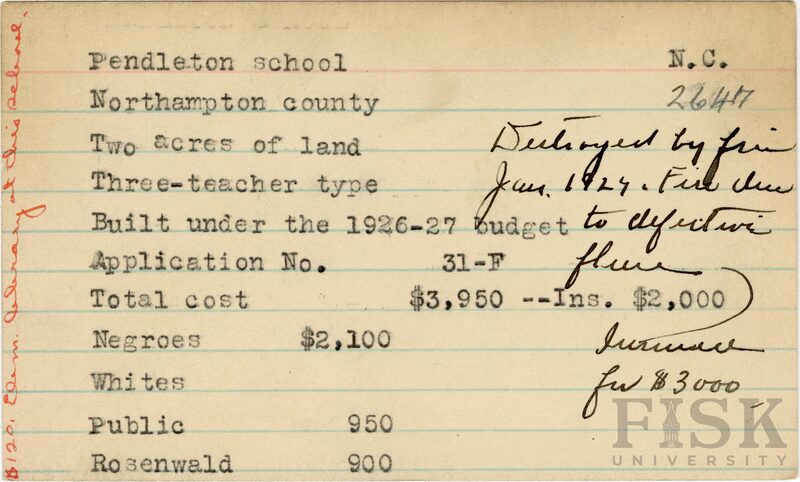 Pendleton school N.C.
Northampton county 2647
Two acres of land Destroyed by fire
Three-teacher type Jan. 1927. Fire due
Built under the 1926-27 budget to defective
Application No. 31-F flue
Total cost $3,950 --Ins. $2,000
Negroes $2,100 Insurance
Whites for $3000
Public 950
Rosenwald 900
$120. Elem. library at this school.
FISK
UNIVERSITY